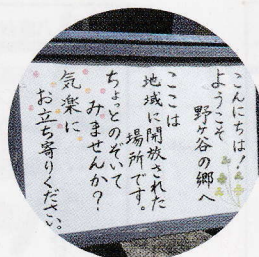 こんにちは!
ようこそ
野ケ谷の郷へ
ここは
地域に開放された
場所です。
ちょっとのぞいて
みませんか?
気楽に
お立ち寄りください。